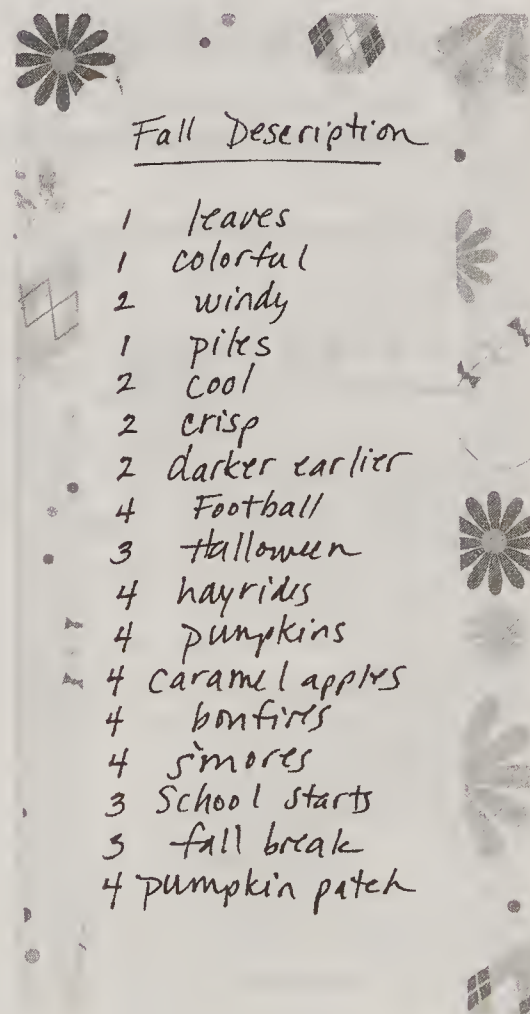 Fall Description
1 leaves
1 colorful
2 windy
1 piles
2 cool
2 crisp
2 darker earlier
4 Football
3 Halloween
4 hayrides
4 pumpkins
4 caramel apples
4 bonfires
4 s'mores
3 School starts
3 fall break
4 pumpkin patch